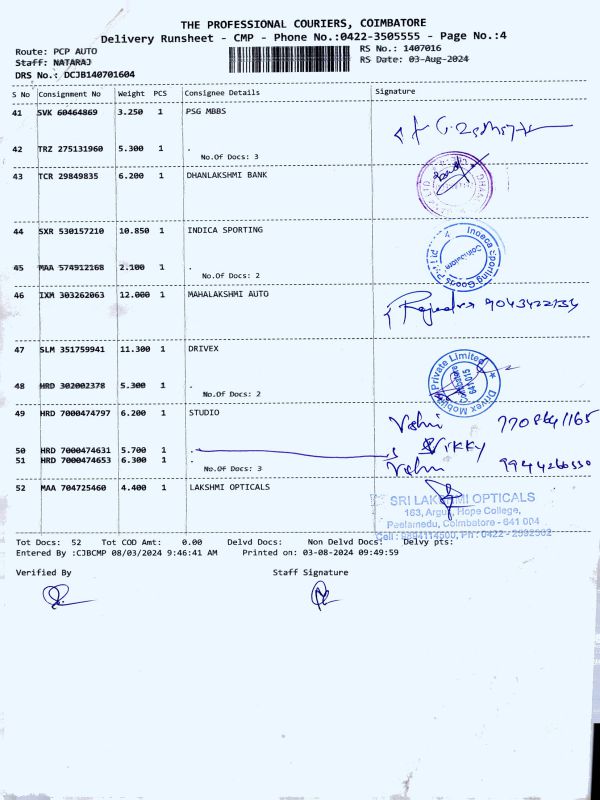 THE PROFESSIONAL COURIERS, COIMBATORE
Delivery Runsheet - CMP - Phone No.:0422-3505555 - Page No.:4
Route: PCP AUTO RS No.: 1407016
Staff: NATARAJ RS Date: 03-Aug-2024
DRS No.: DCJB140701604
S No Consignment No Weight PCS Consignee Details Signature
41 SVK 60464869 3.250 1 PSG MBBS
42 TRZ 275131960 5.300 1 .
No.Of Docs: 3
43 TCR 29849835 6.200 1 DHANLAKSHMI BANK
44 SXR 530157210 10.850 1 INDICA SPORTING
Indeca Sporting Goods Pvt Ltd
Coimbatore
45 MAA 574912168 2.100 1 .
No.Of Docs: 2
46 IXM 303262063 12.000 1 MAHALAKSHMI AUTO
47 SLM 351759941 11.300 1 DRIVEX
Private Limited
Drivex
641015
48 HRD 302002378 5.300 1 .
No.Of Docs: 2
49 HRD 7000474797 6.200 1 STUDIO
Vikky
50 HRD 7000474631 5.700 1 .
51 HRD 7000474653 6.300 1 .
No.Of Docs: 3
52 MAA 704725460 4.400 1 LAKSHMI OPTICALS
SRI LAKSHMI OPTICALS
Hope College,
Peelamedu, Coimbatore - 641 004
Tot Docs: 52 Tot COD Amt: 0.00 Delvd Docs: Non Delvd Docs: Delvy pts:
Entered By :CJBCMP 08/03/2024 9:46:41 AM Printed on: 03-08-2024 09:49:59
Verified By Staff Signature